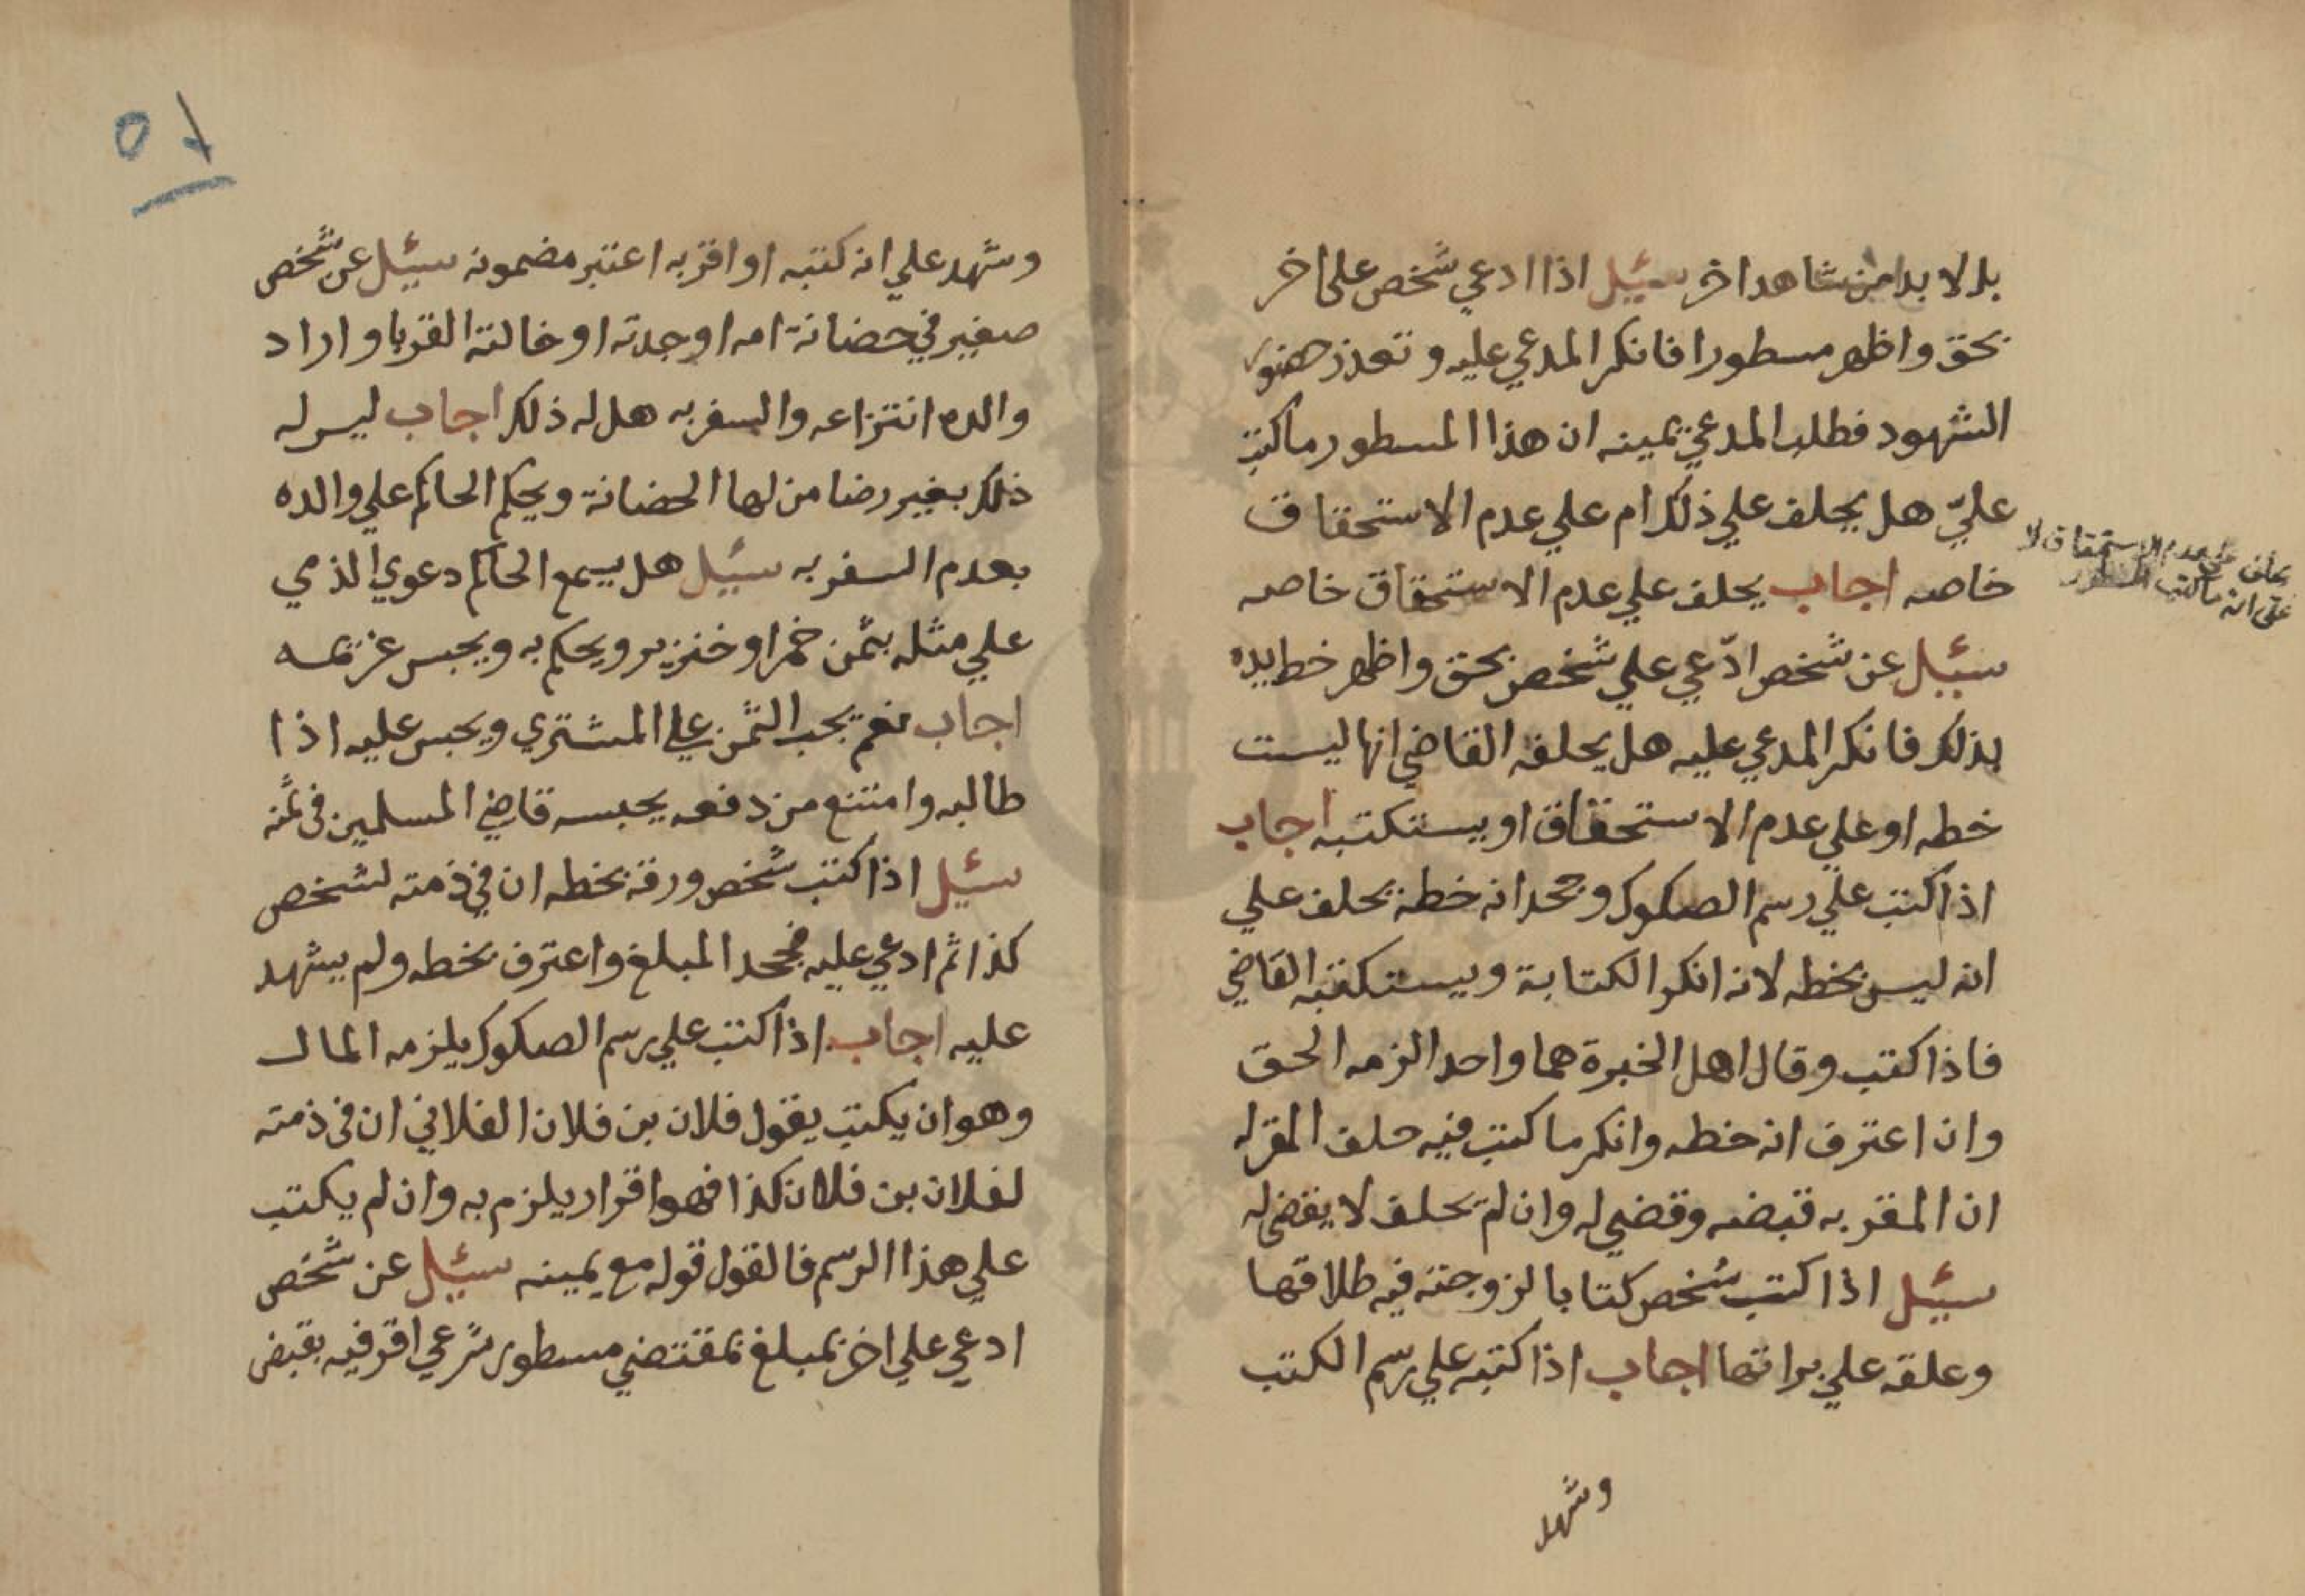 بل لا بد من شاهد اخر سئيل اذا ادعي شخص على اخر
بحق واظهر مسطورا فانكر المدعي عليه وتعذر حضور
الشهود فطلب المدعي يمينه ان هذا المسطور ماكتب
عليّ هل يحلف علي ذلك ام علي عدم الاستحقاق
خاصه اجاب يحلف علي عدم الاستحقاق خاصه
يحلف على عدم الاستحقاق لا
على انه ما كتب المسطور
سئيل عن شخص ادّعي علي شخص بحق واظهر خط يده
بذلك فانكر المدعي عليه هل يحلفه القاضي انها ليست
خطه او علي عدم الاستحقاق او يستكتبه اجاب
اذا كتب علي رسم الصكوك وجحد انه خطه يحلف علي
انه ليس بخطه لانه انكر الكتابة ويستكتبه القاضي
فاذا كتب وقال اهل الخبرة هما واحد الزمه الحق
وان اعترف انه خطه وانكر ما كتب فيه حلف المقر له
ان المقر به قبضه وقضي له وان لم يحلف لا يقضى له
سئيل اذا كتب شخص كتابا لزوجته فيه طلاقها
وعلقه علي براتها اجاب اذا كتبه علي رسم الكتب
وشهد
٥١
وشهد علي انه كتبه او اقر به اعتبر مضمونه سئيل عن شخص
صغير في حضانة امه او جدته او خالته القربا واراد
والده انتزاعه والسفر به هل له ذلك اجاب ليس له
ذلك بغير رضا من لها الحضانة ويحكم الحاكم علي والده
بعدم السفر به سئيل هل يسمع الحاكم دعوي الذمي
علي مثله بثمن خمر او خنزير ويحكم به ويحبس غريمه
اجاب نعم يجب الثمن علي المشتري ويحبس عليه اذا
طالبه وامتنع من دفعه يحبسه قاضي المسلمين في ثمنه
سئيل اذا كتب شخص ورقة بخطه ان في ذمته لشخص
كذا ثم ادعي عليه فجحد المبلغ واعترف بخطه ولم يشهد
عليه اجاب اذا كتب علي رسم الصكوك يلزمه المال
وهو ان يكتب يقول فلان بن فلان الفلاني ان في ذمته
لفلان بن فلان كذا فهو اقرار يلزم به وان لم يكتب
علي هذا الرسم فالقول قوله مع يمينه سئيل عن شخص
ادعي علي اخر بمبلغ بمقتضي مسطور شرعي اقر فيه بقبض